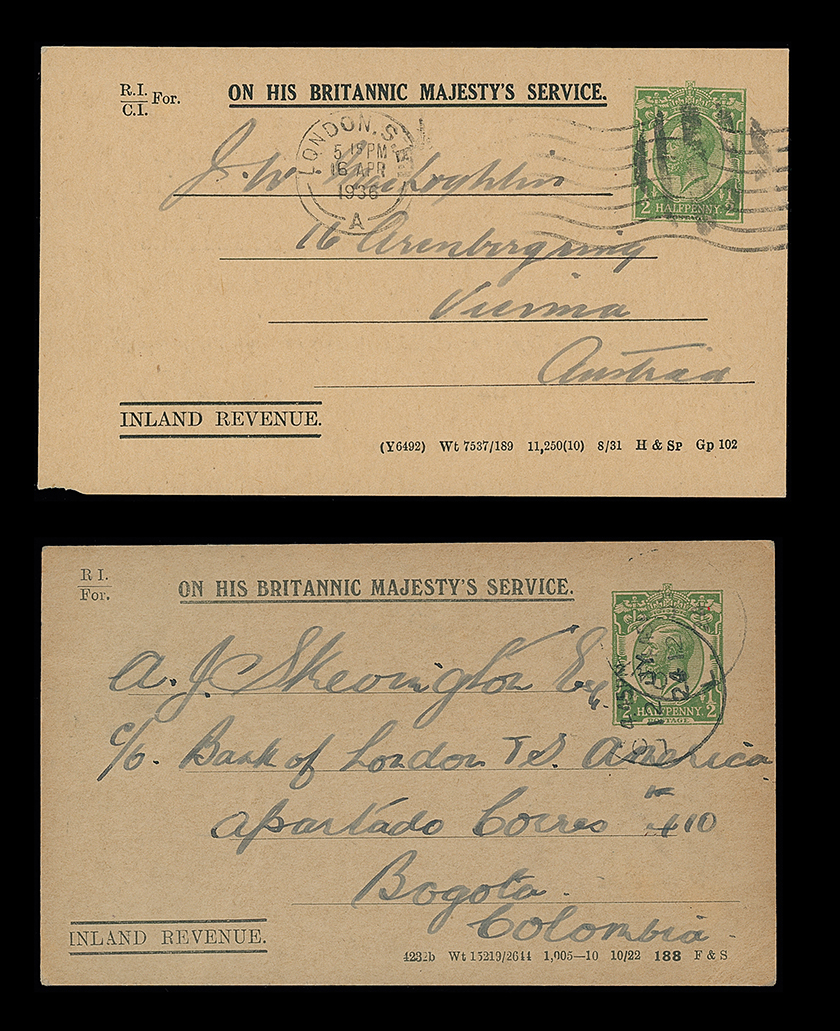 R.I.
C.I. For.
ON HIS BRITANNIC MAJESTY'S SERVICE.
LONDON. S
5 15 PM
16 APR
1936
A
2 HALFPENNY. 2
POSTAGE
J. W. McLoghlin
16 Arenbergring
Vienna
Austria
INLAND REVENUE.
(Y6492) Wt 7537/189 11,250(10) 8/31 H & Sp Gp 102
R I.
For.
ON HIS BRITANNIC MAJESTY'S SERVICE.
2 HALFPENNY. 2
POSTAGE
A. J. Skevington Esq.
c/o. Bank of London & S. America
Apartado Correo
410
Bogota.
Colombia.
INLAND REVENUE.
4232b Wt 15219/2644 1,005—10 10/22 188 F & S